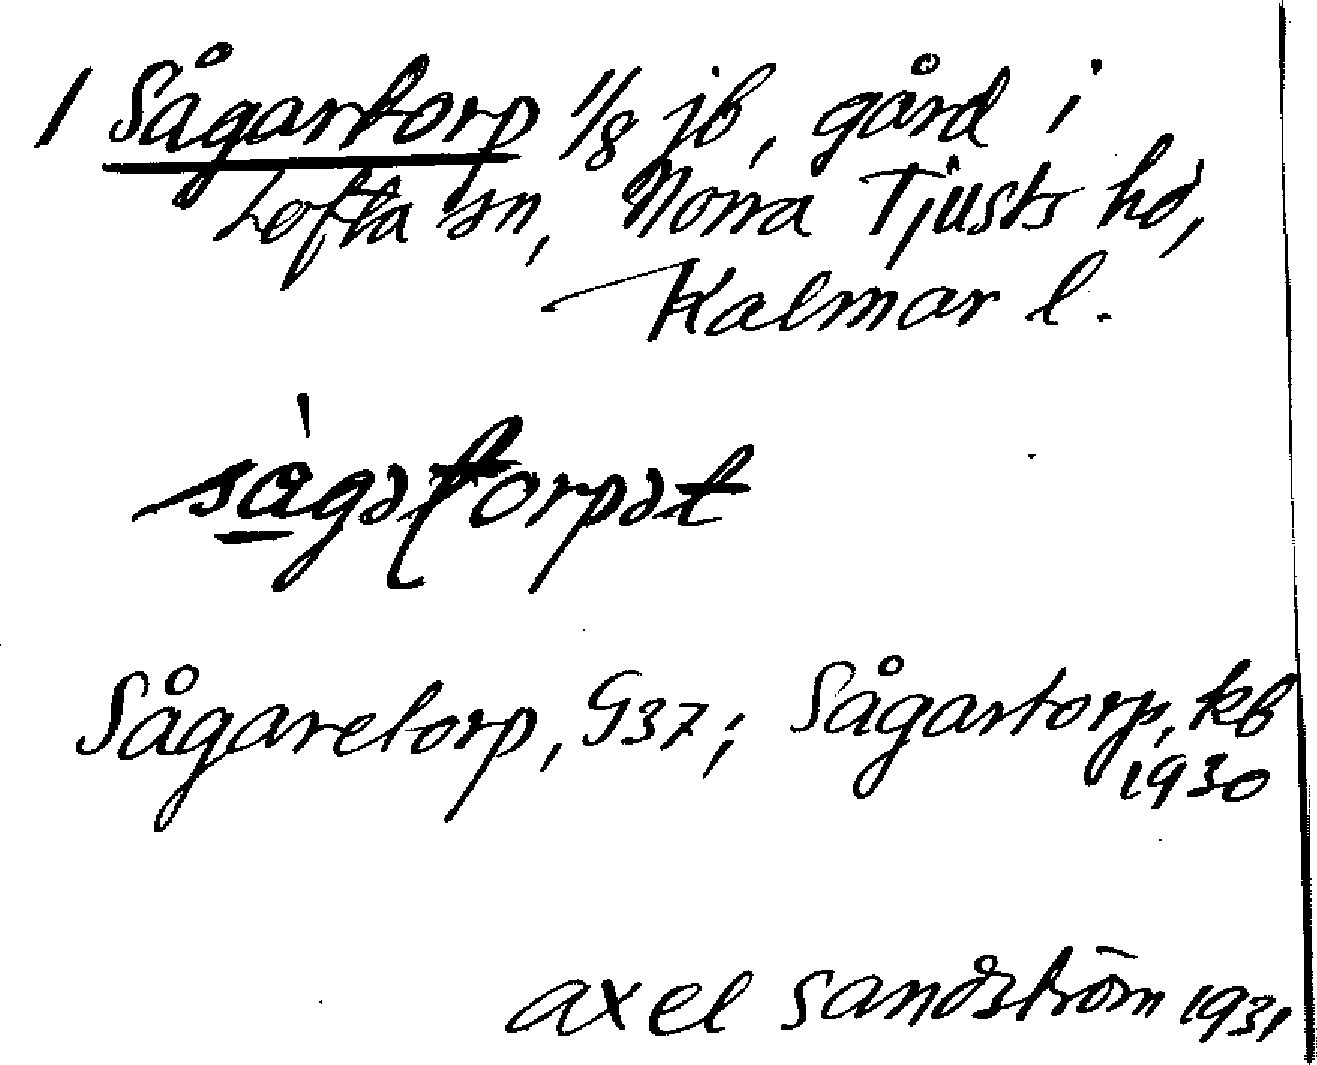 1 Sågartorp 1/8 jb, gård i
Lofta sn, Norra Tjusts hd,
Kalmar l.
sågətorpət
Sågaretorp, G37; Sågartorp, kb
1930
Axel Sandström 1931